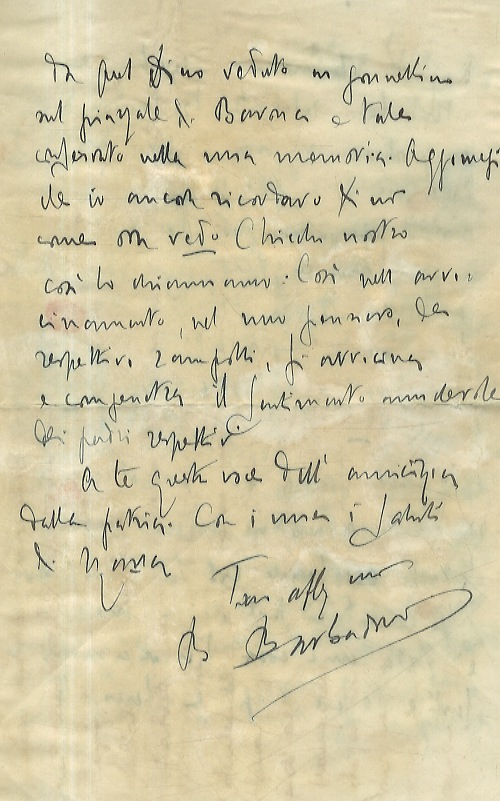 Da quel Dino veduto in gonnellino
sul piazzale di Barona e tale
conservato nella mia memoria. Aggiungi
che io ancora ricordavo Dino
come ora vedo Checchi nostro
così lo chiamiamo. Così nell'avvi-
cinamento, nel mio pensiero, dei
respettivi rampolli, si avvicina
e compenetra il sentimento amichevole
dei padri respettivi.
A te questa voce dell'amicizia
dalla patria. Con i miei i saluti
di
Tuo affº
B Barbadoro